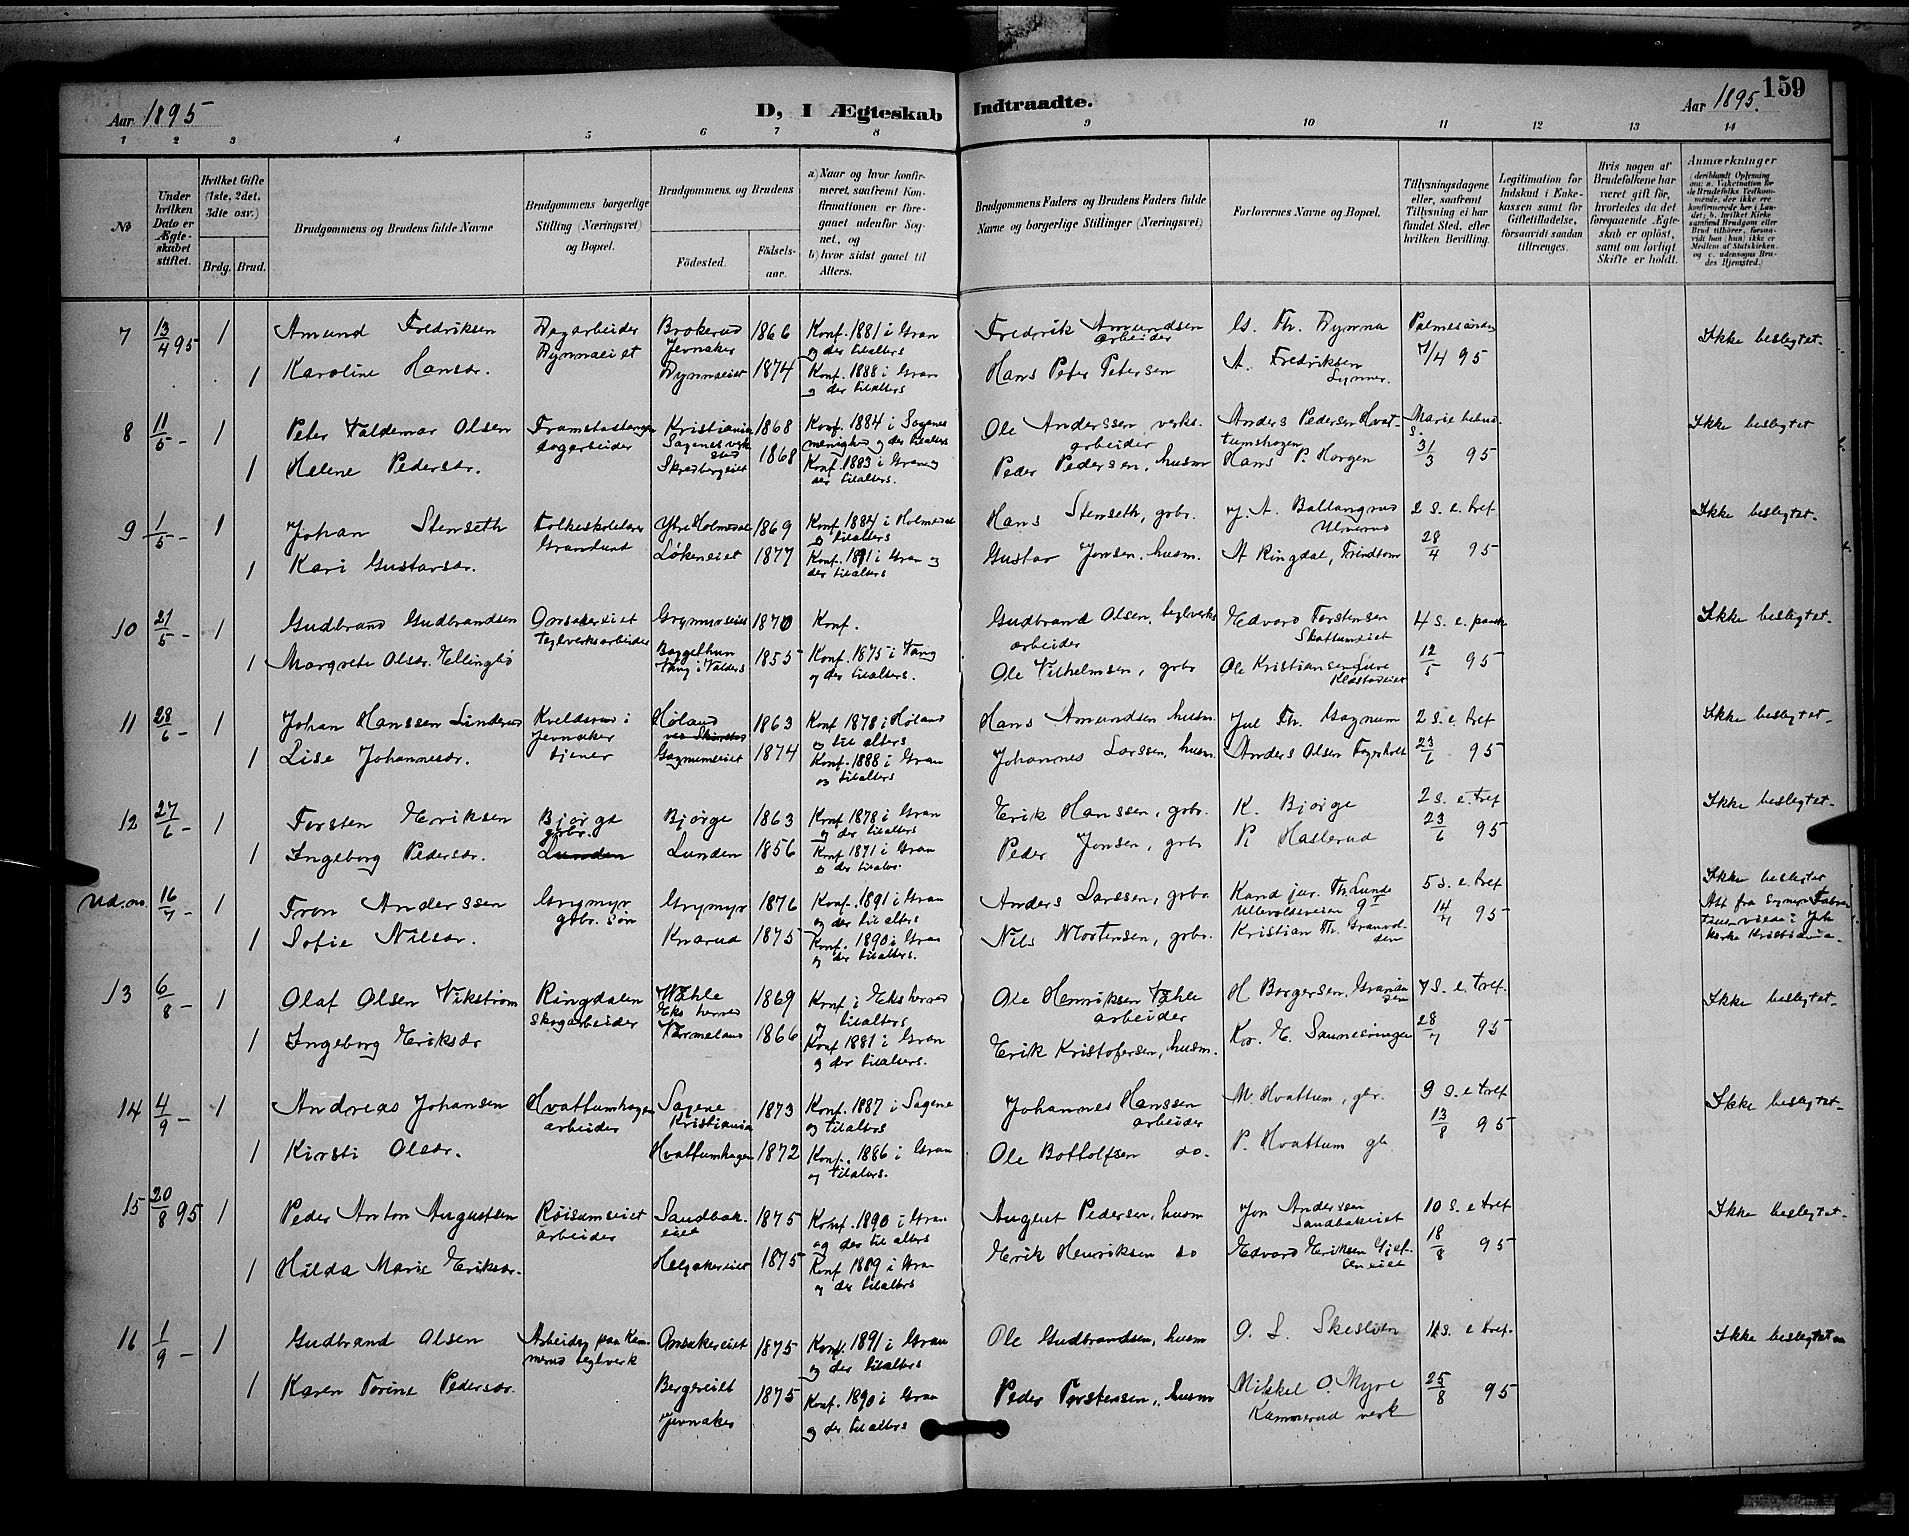 Aar 1895
D, I Ægteskab Indtraadte.
Aar 1895.
159
1 2 3 4 5 6 7 8 9 10 11 12 13 14
No
Under hvilken Dato er Ægteskabet stiftet.
Hvilket Gifte (1ste, 2det, 3die osv.)
Brdg. Brud.
Brudgommens og Brudens fulde Navne
Brudgommens borgerlige Stilling (Næringsvei) og Bopæl.
Brudgommens og Brudens
Födested.
Födselsaar.
a) Naar og hvor konfirmeret, saafremt Konfirmationen er foregaaet udenfor Sognet, og
b) hvor sidst gaaet til Alters.
Brudgommens Faders og Brudens Faders fulde Navne og borgerlige Stillinger (Næringsvei)
Forlovernes Navne og Bopæl.
Tillysningsdagene eller, saafremt Tillysning ei har fundet Sted, efter hvilken Bevilling.
Legitimation for Indskud i Enkekassen samt for Giftetilladelse, forsaavidt saadan tiltrænges.
Hvis nogen af Brudefolkene har været gift för, hvorledes da det foregaaende Ægteskab er oplöst, samt om lovligt Skifte er holdt.
Anmærkninger
(deriblandt Oplysning om: a. Vakcination for de Brudefolks Vedkommende, der ikke ere konfirmerede her i Landet; b. hvilket Kirkesamfund Brudgom eller Brud tilhörer, forsaavidt han (hun) ikke er Medlem af Statskirken, og c. udensogns Brudes Hjemsted.)
7 13/4 95 1 Amund Fredriksen Dagarbeider Dynnaeiet Brokerud Jevnaker 1866 Konf. 1881 i Gran og der tilalters Fredrik Amundsen arbeider G. Th. Dynna Palmesønd. 7/4 95 Ikke beslegtet
1 Karoline Hansdr. Dynnaeiet 1874 Konf. 1888 i Gran og der tilalters Hans Peter Petersen A. Fredriksen
8 11/5 - 1 Peter Valdemar Olsen dagarbeider Kristiania Sagenes 1868 Konf. 1884 i Sagenes menighed og der tilalters Ole Anderssen verksarbeider Anders Pedersen Hvattumshagen Marie bebud. s. 31/3 95 Ikke beslegtet
1 Helene Pedersdr. 1868 Konf. 1883 i Gran og der tilalters. Peder Pedersen, husm Hans P. Horgen
9 1/5 - 1 Johan Stenseth Folkeskolelærer Granlund Ytre Holmedal 1869 Konf. 1884 i Holmedal og tilalters Hans Stenseth, grbr. J. A. Ballangrud Ulverud 2 s. e. tref 28/4 95 Ikke beslegtet
1 Kari Gustavsdr. Løkeneiet 1877 Konf. 1891 i Gran og der tilalters Gustav Jonsen, husm. A Ringdal,
10 21/5 - 1 Gudbrand Gudbrandsen Onsakereiet teglverksarbeider Grymyreiet 1870 Konf. Gudbrand Olsen, teglverksarbeider Edvard Torstensen Skattumeiet 4 s. e. paask 12/5 95 Ikke beslegtet
1 Margrete Olsdr. Ellingbø Vang i Valders 1855 Konf. 1875 i Vang og der tilalters. Ole Vilhelmsen, grbr Ole Kristiansen
11 28/6 - 1 Johan Hanssen Linderud Kveldsrud i Jevnaker tjener Høland 1863 Konf 1878 i Høland og til alters Hans Amundsen, husm. Jul Th. Gagnum 2 s. e. tref 23/6 95 Ikke beslegtet
1 Lise Johannesdr. Gagnumeiet 1874 Konf. 1888 i Gran og tilalters Johannes Larssen, husm. Anders Olsen
12 27/6 - 1 Torsten Eriksen Bjørge grbr. Bjørge 1863 Konf 1878 i Gran og der tilalters Erik Hanssen, grbr. K. Bjørge 2 s. e. tref 23/6 95 Ikke beslegtet
1 Ingeborg Pedersdr. Lunden Lunden 1856 Konf. 1871 i Gran og der tilalters. Peder Jonsen, grbr P. Haslerud
Ud. m. 16/7 - 1 Tron Anderssen Grymyr grbr. søn Grymyr 1876 Konf. 1891 i Gran og der til alters Anders Larssen, grbr. Kand jur. Th. Lunde Ullevoldsveien 5 s. e. tref 14/7 95 Ikke beslegtet
1 Sofie Nilsdr. Knarud 1875 Konf. 1890 i Gran og der tilalters. Nils Mortensen, grbr. Kristian Th. Granvolden
13 6/8 - 1 Olaf Olsen Vikstrøm Ringdalen skogarbeider Vahle Eks herred Vermeland 1869 Konf. i Eks herred og tilalters Ole Henriksen Vahle arbeider H Borgersen, 7 s. e. tref. 28/7 95 Ikke beslegtet
1 Ingeborg Eriksdr 1866 Konf 1881 i Gran og der tilalters. Erik Kristofersen, husm.
14 4/9 - 1 Andreas Johansen Hvattumhagen arbeider Sagene Kristiania 1873 Konf. 1887 i Sagene og tilalters Johannes Hanssen arbeider M. Hvattum, gbr. 9 s. e tref 13/8 95 Ikke beslegtet
1 Kirsti Olsdr. Hvattumhagen 1872 Konf. 1886 i Gran og tilalters. Ole Bottolfsen do. P. Hvattum gb
15 20/8 95 1 Peder Anton Augustsen Røisumeiet arbeider Sandbakeiet 1875 Konf. 1890 i Gran og der til alters August Pedersen, husm Jon Anderssen Sandbakeiet 10 s. e tref 18/8 95 Ikke beslegtet
1 Hilda Marie Eriksdr. Helgakereiet 1875 Konf 1889 i Gran og der tilalters Erik Henriksen do Edvard Eriksen
16 1/9 - 1 Gudbrand Olsen Arbeider paa Kammerud teglverk Onsakereiet 1875 Konf. 1891 i Gran og der tilalters Ole Gudbrandsen, husm O. L. Skeslien 11 s. e tref. 25/8 95 Ikke beslegtet
1 Karen Torine Pedersdr. Bergereiet Jevnaker 1875 Konf. 1890 i Gran og der tilalters Peder Torstensen, husm Mikkel O. Myre Kammerud verk